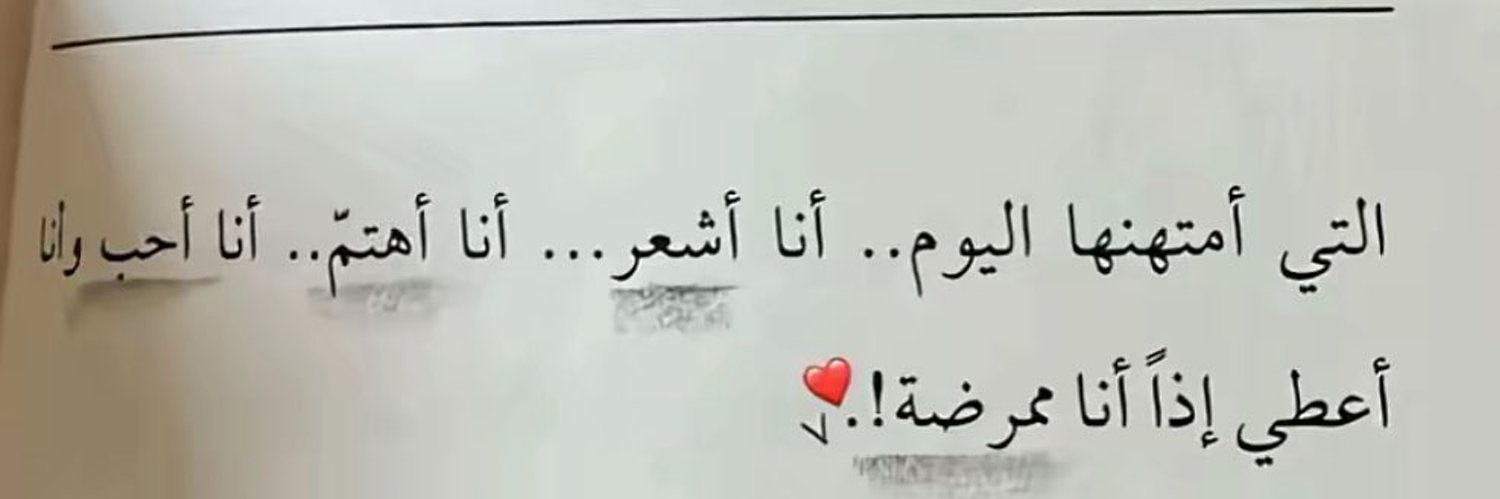 التي أمتهنها اليوم.. أنا أشعر... أنا أهتمّ.. أنا أحب وأنا
أعطي إذاً أنا ممرضة!.❤️